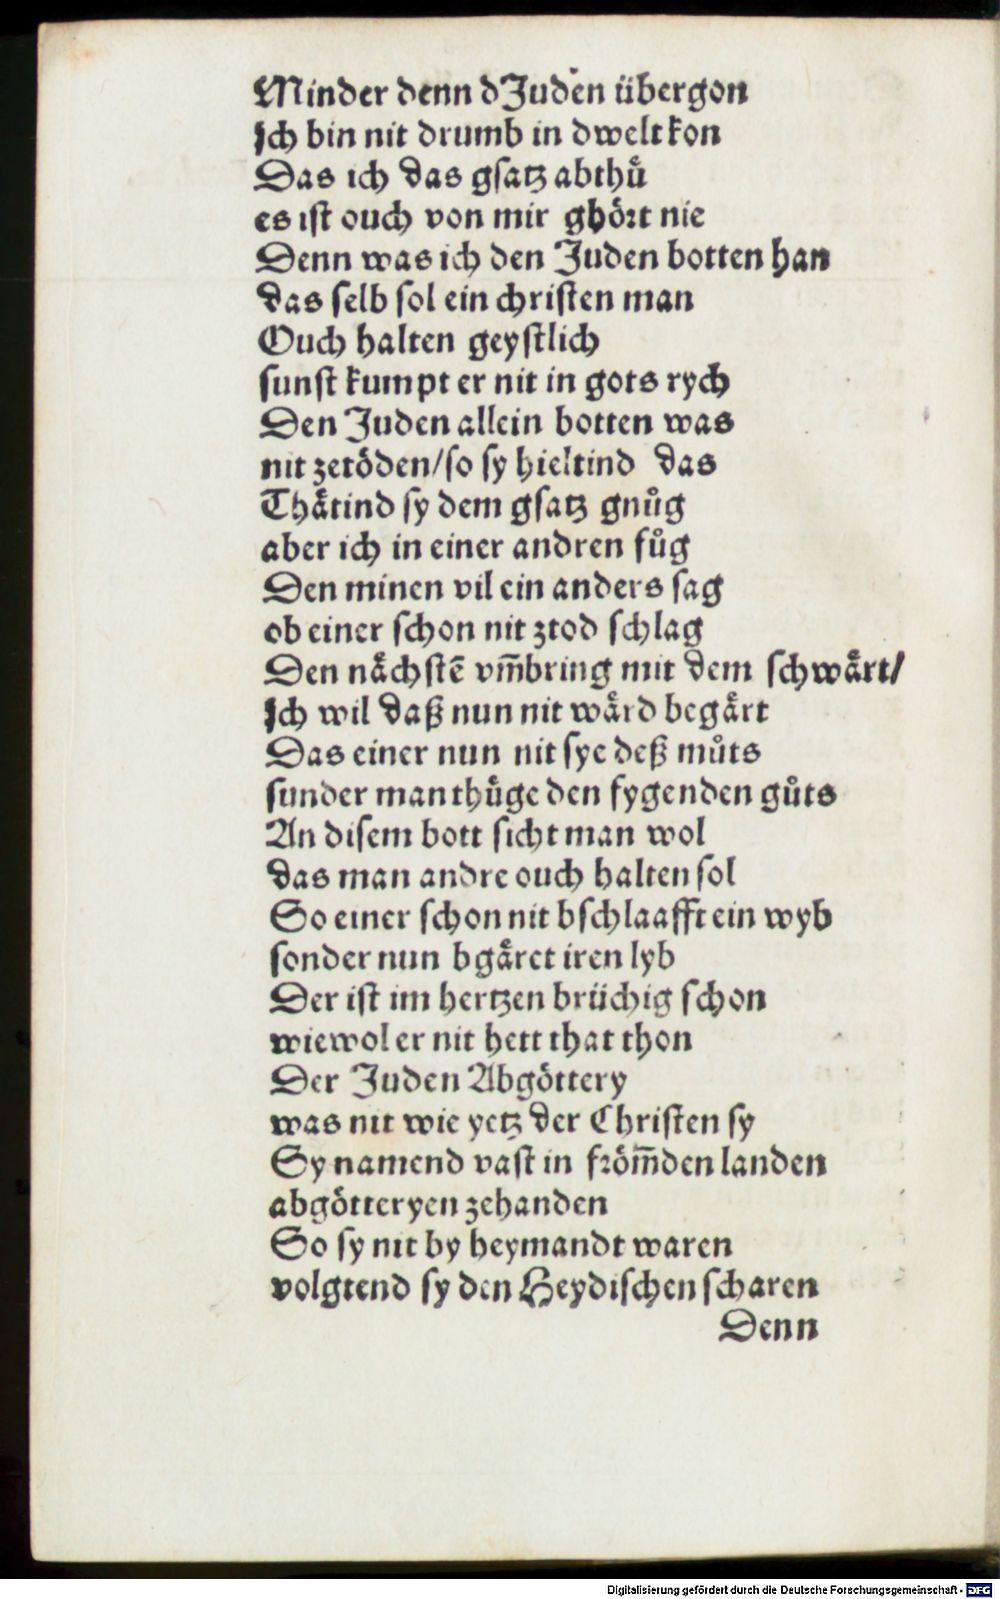 Minder denn d'Juden übergon
Ich bin nit drumb in dwelt kon
Das ich das gsatz abthuͤ
es ist ouch von mir ghoͤrt nie
Denn was ich den Juden botten han
das selb sol ein christen man
Ouch halten geystlich
sunst kumpt er nit in gots rych
Den Juden allein botten was
nit zetoͤden/so sy hieltind das
Thaͤtind sy dem gsatz gnuͦg
aber ich in einer andren fuͦg
Den minen vil ein anders sag
ob einer schon nit ztod schlag
Den naͤchstē vm̄bring mit dem schwaͤrt/
Ich wil daß nun nit waͤrd begaͤrt
Das einer nun nit sye deß muͦts
sunder man thuͤge den fygenden guͦts
An disem bott sicht man wol
das man andre ouch halten sol
So einer schon nit bschlaafft ein wyb
sonder nun bgaͤret iren lyb
Der ist im hertzen brüchig schon
wiewol er nit hett that thon
Der Juden Abgoͤttery
was nit wie yetz der Christen sy
Sy namend vast in froͤm̄den landen
abgoͤtteryen zehanden
So sy nit by heymandt waren
volgtend sy den Heydischen scharen
Denn
Digitalisierung gefördert durch die Deutsche Forschungsgemeinschaft - DFG